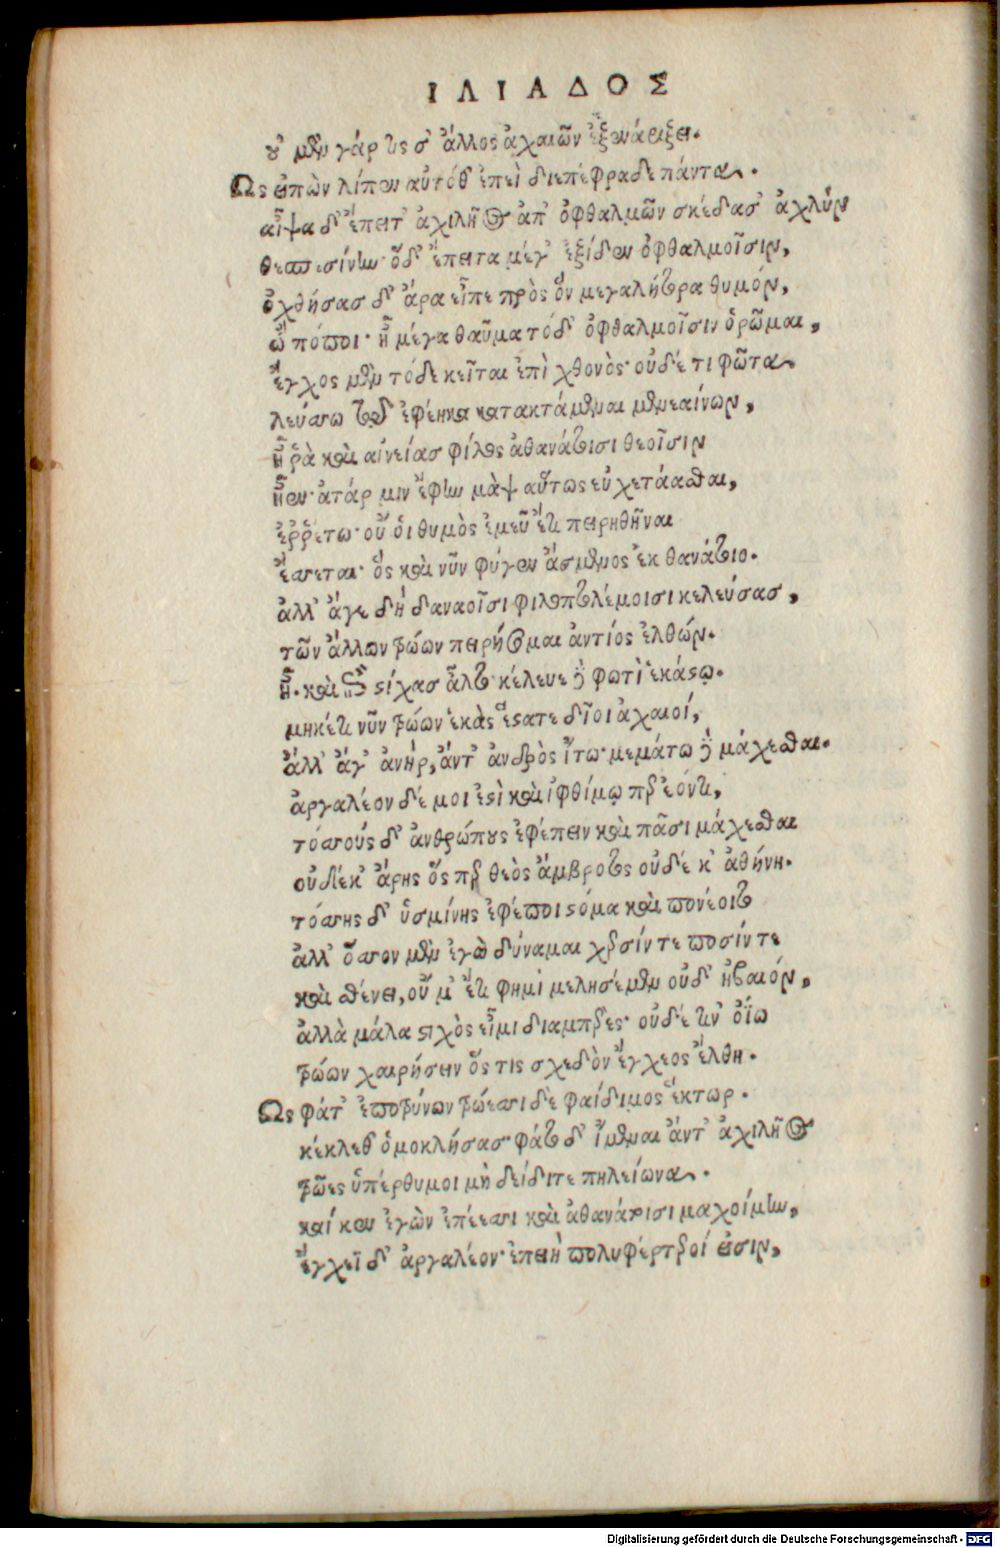 ΙΛΙΑΔΟΣ
οὐ μὲν γάρ τίς σ' ἄλλος ἀχαιῶν ἐξεναρίξει.
Ως εἰπὼν λίπεν αὐτόθ' ἐπεὶ διεπέφραδε πάντα.
αἶψα δ' ἔπειτ' ἀχιλῆος ἀπ' ὀφθαλμῶν σκέδασ' ἀχλὺν
θεσπεσίην· ὅδ' ἔπειτα μέγ' ἐξίδεν ὀφθαλμοῖσιν,
ὀχθήσας δ' ἄρα εἶπε πρὸς ὃν μεγαλήτορα θυμόν,
ὢ πόποι· ἦ μέγα θαῦμα τόδ' ὀφθαλμοῖσιν ὁρῶμαι,
ἔγχος μὲν τόδε κεῖται ἐπὶ χθονὸς· οὐδέ τι φῶτα
λεύσσω τῷ ἐφέηκα κατακτάμεναι μενεαίνων,
ἦ ῥὰ καὶ αἰνείας φίλος ἀθανάτοισι θεοῖσιν
ἦεν· ἀτάρ μιν ἔφην μὰψ αὔτως εὐχετάασθαι,
ἐῤῥέτω· οὔ οἱ θυμὸς ἐμεῦ ἔτι πειρηθῆναι
ἔσσεται· ὃς καὶ νῦν φύγεν ἄσμενος ἐκ θανάτοιο.
ἀλλ' ἄγε δὴ δαναοῖσι φιλοπτολέμοισι κελεύσας,
τῶν ἄλλων τρώων πειρήσομαι ἀντίος ἐλθών.
ἦ. καὶ ἐπὶ στίχας ἆλτο· κέλευε δὲ φωτὶ ἑκάστῳ.
μηκέτι νῦν τρώων ἑκὰς ἔστατε δῖοι ἀχαιοί,
ἀλλ' ἄγ' ἀνὴρ, ἄντ' ἀνδρὸς ἴτω· μεμάτω δὲ μάχεσθαι.
ἀργαλέον δέ μοι ἐστὶ καὶ ἰφθίμῳ περ ἐόντι,
τόσσους δ' ἀνθρώπους ἐφέπειν καὶ πᾶσι μάχεσθαι
οὐδέκ' ἄρης ὅς περ θεὸς ἄμβροτος οὐδέ κ' ἀθήνη.
τόσσης δ' ὑσμίνης ἐφέποι στόμα καὶ πονέοιτο
ἀλλ' ὅσσον μὲν ἐγὼ δύναμαι χερσίν τε ποσίν τε
καὶ σθένει, οὔ μ' ἔτι φημὶ μελησέμεν οὐδ' ἠβαιόν,
ἀλλὰ μάλα στιχὸς εἶμι διαμπερές· οὐδέ τιν' ὀΐω
τρώων χαιρήσειν ὅς τις σχεδὸν ἔγχεος ἔλθῃ.
Ως φάτ' ἐποτρύνων τρώεσσι δὲ φαίδιμος ἕκτωρ.
κέκλεθ' ὁμοκλήσας· φάτο δ' ἴμεναι ἄντ' ἀχιλῆος
τρῶες ὑπέρθυμοι μὴ δείδιτε πηλείωνα.
καί κεν ἐγὼν ἐπέεσσι καὶ ἀθανάτοισι μαχοίμην,
ἔγχεϊ δ' ἀργαλέον· ἐπειὴ πολυφέρτεροί εἰσιν,
Digitalisierung gefördert durch die Deutsche Forschungsgemeinschaft - DFG